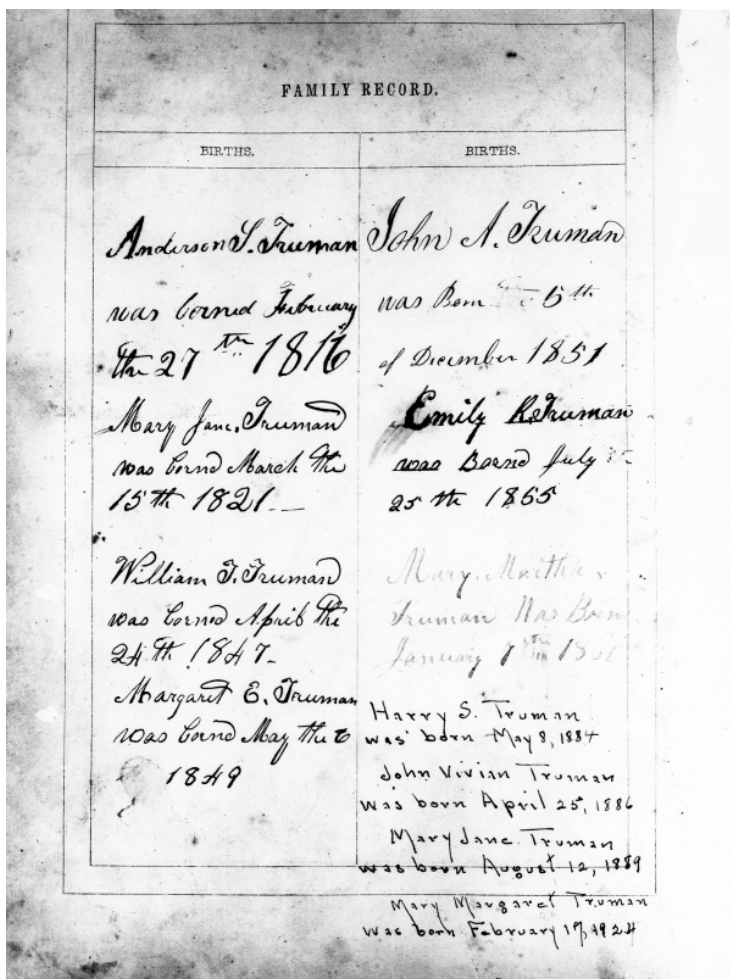 FAMILY RECORD.
BIRTHS.
Anderson S. Truman
was borned February
the 27th 1816
Mary Jane Truman
was bornd March the
15th 1821
William T. Truman
was borned April the
24th 1847
Margaret E. Truman
was bornd May the
1849
BIRTHS.
John A. Truman
was Born 5th
of December 1851
Emily R. Truman
was Bornd July
25th 1855
Mary Martha
Truman Was Born
January 186
Harry S. Truman
was born May 8, 1884
John Vivian Truman
was born April 25, 1886
Mary Jane Truman
was born August 12, 1889
Mary Margaret Truman
was born February 17, 1924